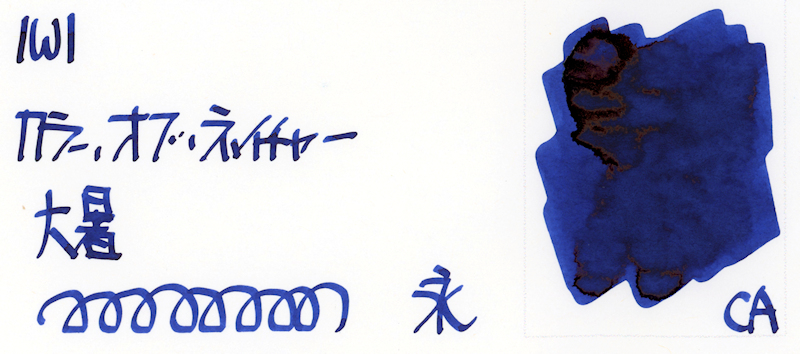 IWI
カラー・オブ・ネイチャー
大暑
永
CA